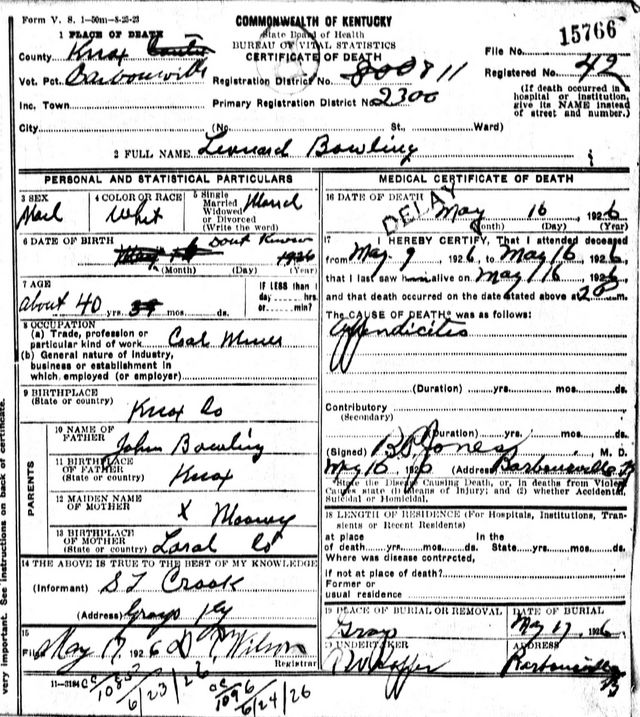 Form V. S. 1-50m-8-25-23
COMMONWEALTH OF KENTUCKY
State Board of Health
BUREAU OF VITAL STATISTICS
CERTIFICATE OF DEATH
15766
1 PLACE OF DEATH
County Knox
File No.
Vot. Pct. Barbourville
Registration District No. 811
Registered No. 42
Inc. Town
Primary Registration District No. 2300
(If death occurred in a hospital or institution, give its NAME instead of street and number.)
City (No. St., Ward)
2 FULL NAME Leonard Bowling
PERSONAL AND STATISTICAL PARTICULARS
3 SEX Mail
4 COLOR OR RACE Whit
5 Single Married Widowed or Divorced (Write the word) Maried
6 DATE OF BIRTH Dont Know 1926
(Month) (Day) (Year)
7 AGE about 40 yrs. mos. ds.
If LESS than 1 day hrs. or min?
8 OCCUPATION
(a) Trade, profession or particular kind of work Coal Miner
(b) General nature of industry, business or establishment in which employed (or employer)
9 BIRTHPLACE (State or country) Knox Co
PARENTS
10 NAME OF FATHER John Bowling
11 BIRTHPLACE OF FATHER (State or country) Knox
12 MAIDEN NAME OF MOTHER X
13 BIRTHPLACE OF MOTHER (State or country) Laral Co
14 THE ABOVE IS TRUE TO THE BEST OF MY KNOWLEDGE
(Informant) S T Crook
(Address) Grays Ky
15 Filed May 17 1926 Wilson
Registrar
11-3184
10850
6/23/26
1096
6/24/26
MEDICAL CERTIFICATE OF DEATH
DELAY
16 DATE OF DEATH May 16, 1926
(Month) (Day) (Year)
17 I HEREBY CERTIFY, That I attended deceased
from May 9, 1926, to May 16, 1926,
that I last saw him alive on May 16, 1926,
and that death occurred on the date stated above at m.
The CAUSE OF DEATH* was as follows:
Appendicites
(Duration) yrs. mos. ds.
Contributory
(Secondary)
(Duration) yrs. mos. ds.
(Signed) Jones M. D.
May 16, 1926 (Address) Barbourville Ky
*State the Disease Causing Death, or, in deaths from Violent Causes state (1) Means of Injury; and (2) whether Accidental, Suicidal or Homicidal.
18 LENGTH OF RESIDENCE (For Hospitals, Institutions, Transients or Recent Residents)
at place of death yrs. mos. ds. In the State yrs. mos. ds.
Where was disease contracted,
if not at place of death?
Former or usual residence
19 PLACE OF BURIAL OR REMOVAL Gray
DATE OF BURIAL May 17, 1926
20 UNDERTAKER
ADDRESS Barbourville Ky
very important. See instructions on back of certificate.